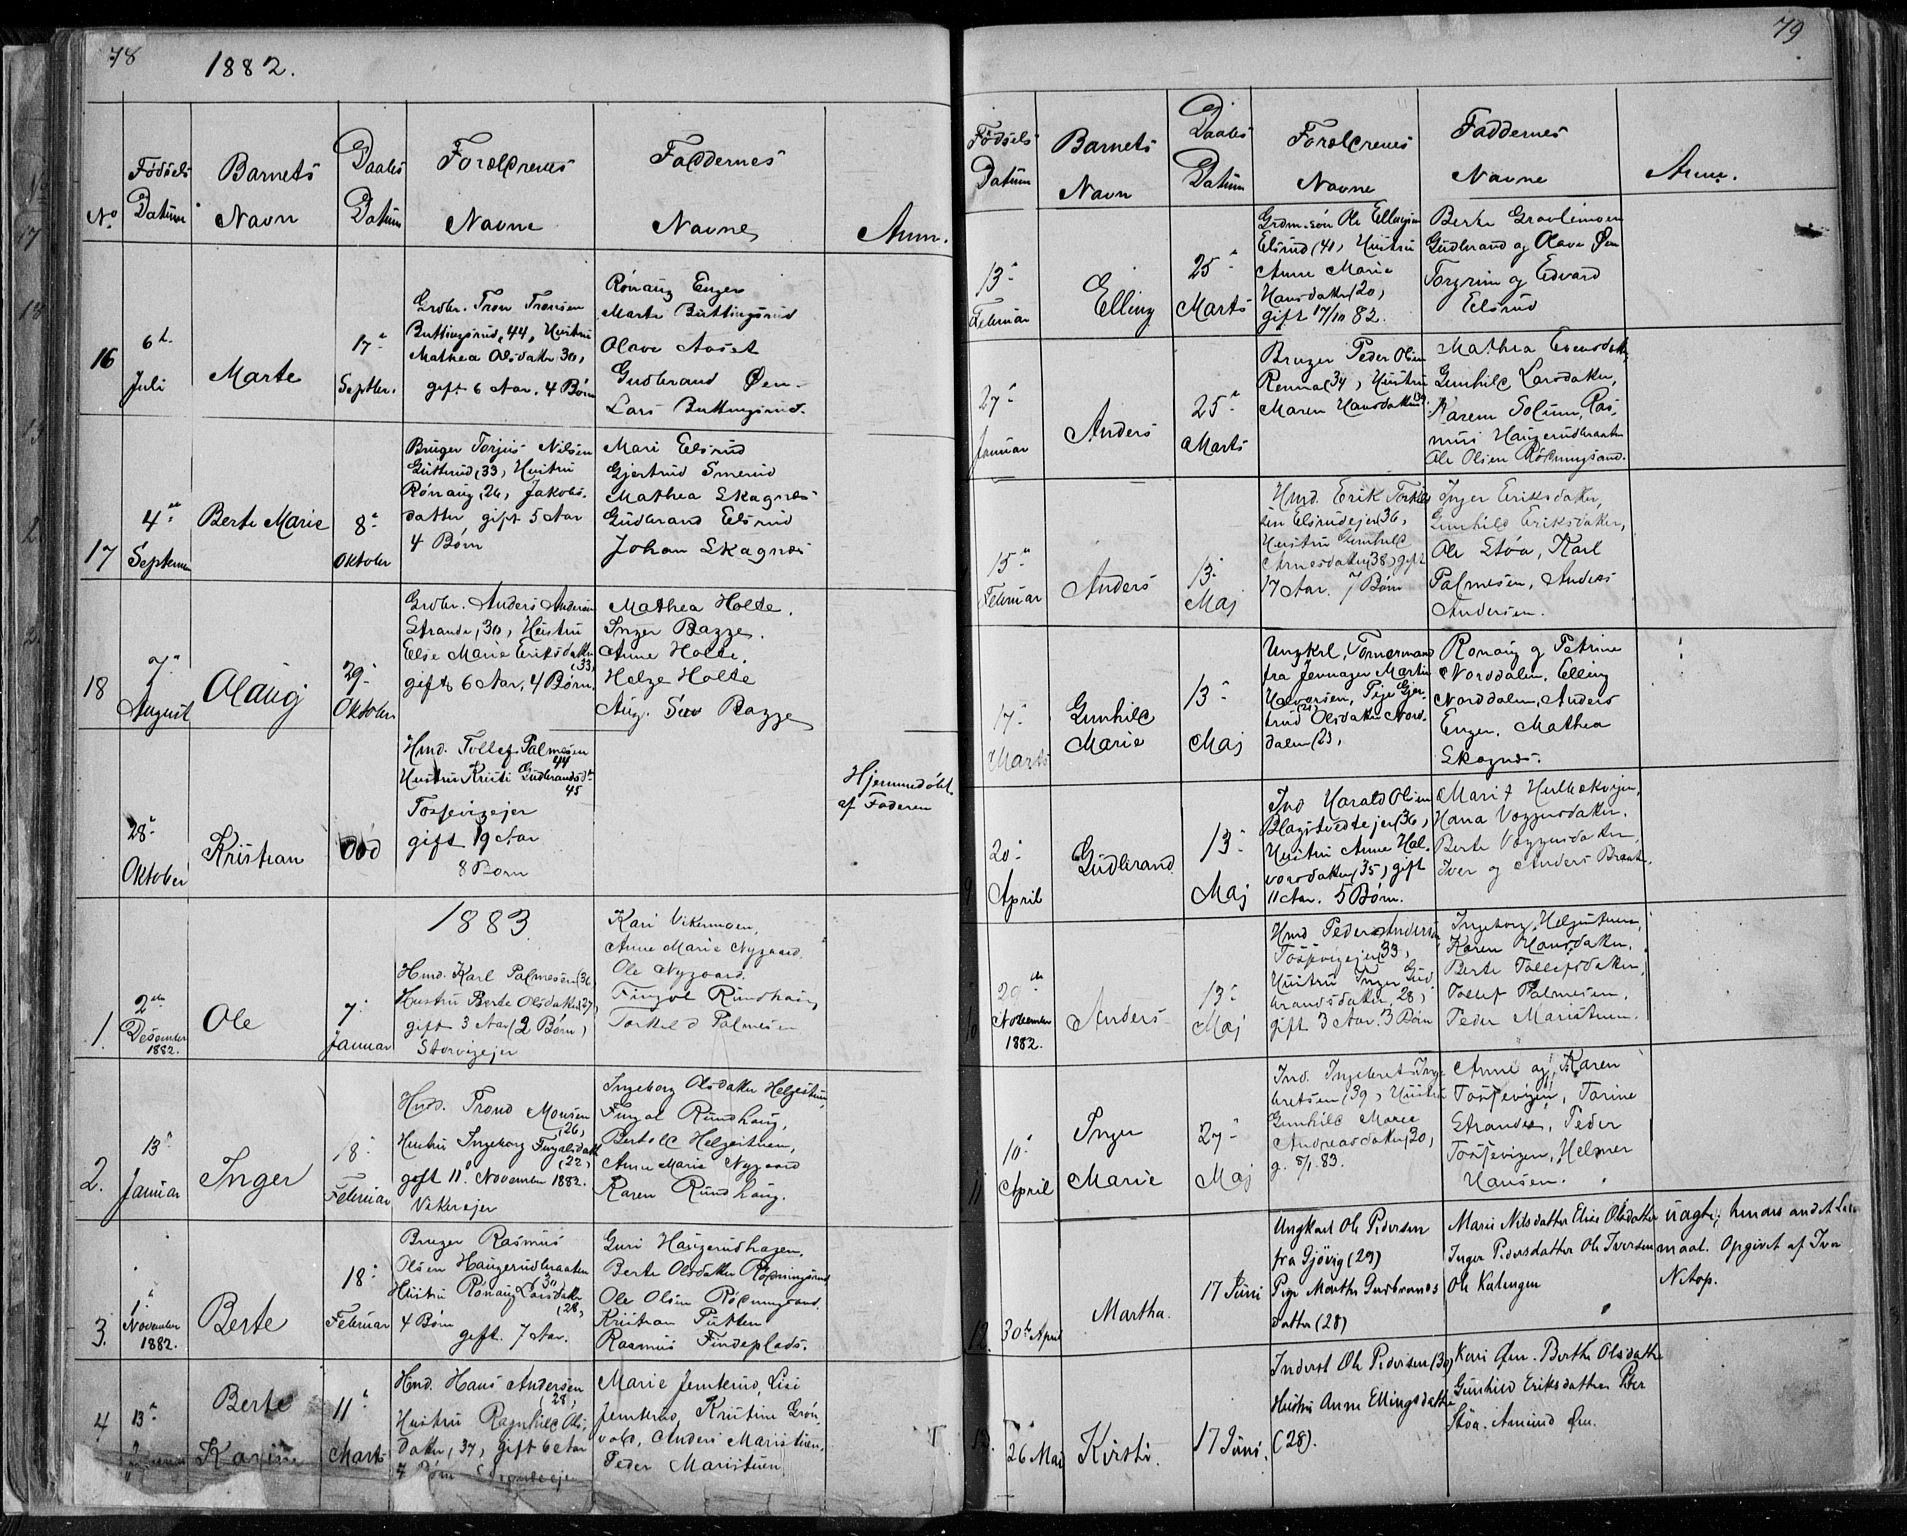 78
1882.
No
Fødsels
Datum
Barnets
Navn
Daabs
Datum
Forældrenes
Navne
Faddernes
Navne
Anm.
16
6te
Juli
Marte
17de
Septbr.
Grdbr. Tron Tronsen
Buttingsrud, 44, Hustru
Mathea Olsdatter 30,
gift 6 Aar, 4 Børn
Rønaug Enger
Marte Buttingsrud
Olave Aaset
Gudbrand Øen
Lars Buttingsrud.
17
4de
September
Berte Marie
8de
Oktober
Bruger Torjus Nilsen
Guttrud, 33, Hustru
Rønaug, 26, Jakobs-
datter, gift 5 Aar
4 Børn
Mari Elsrud
Gjertrud Smerud
Mathea Skagnæs
Gudbrand Elsrud
Johan Skagnæs
18
7de
August
Olaug
29de
Oktober
Grdbr. Anders Andersen
Strande, 30, Hustru
Else Marie Eriksdatter
(33)
gift 6 Aar, 4 Børn.
Mathea Holte.
Inger Bagge.
Anne Holte.
Helge Holte
Aug. Bagge
28de
Oktober
Kristian
Død
Hmd. Tollef Palmesen
44
Hustru Kristi Gudbrandsdt.
45
Tosjevigejer
gift 19 Aar
8 Børn
Hjemmedøbt
af Faderen
1883
1.
2den
Desember
1882.
Ole
7de
Januar
Hmd. Karl Palmesen (36,
Hustru Berte Olsdatter (27,
gift 3 Aar (2 Børn)
Storvigejer
Kari Vikermoen,
Anne Marie Nygaard.
Ole Nygaard.
Fingal Rundhaug
Torkild Palmesen
2.
13de
Januar
Inger
18de
Februar
Hmd. Trond Monsen
(26,
Hustru Ingeborg Fingalsdatt.
(22,
gift 11te November 1882.
Vikerejer
Ingeborg Olsdatter Helgestuen,
Fingal Rundhaug,
Bertole Helgestuen,
Anne Marie Nygaard
Karen Rundhaug.
3.
1ste
November
1882.
Berte
18de
Februar
Bruger Rasmus
Olsen Haugerudbraaten
30
Hustru Rønaug Larsdatter
(28,
4 Børn
gift 7 Aar.
Guri Haugerudhagen.
Berte Olsdatter Røpningsand
Ole Olsen Røpningsand.
Kristian Putten
Rasmus Findeplads.
4
13de
Januar
Berte
Karine
11te
Marts
Hmd. Hans Andersen
28,
Hustru Ragnhild Ols-
datter, 37, gift 6 Aar
4 Børn
Marie Jemterud, Lise
Jemterud, Kristine Grøn-
vold, Anders Maristuen,
Peder Maristuen
79
Fødsels
Datum
Barnets
Navn
Daabs
Datum
Forældrenes
Navne
Faddernes
Navne
Anm.
13de
Februar
Elling
25de
Marts
Grdm.søn Ole Ellingsen
Elsrud (40, Hustru
Anne Marie
Hansdatter (20,
gift 17/10 82.
Berte Gravlimoen
Gudbrand og Olava Øen
Torgrim og Edvard
Elsrud
27de
Januar
Anders
25de
Marts
Bruger Peder Olsen
Renna (34, Hustru
Maren Hansdatter
Mathea Evensdatter
Gunhild Larsdatter,
Karen Solum, Ras-
mus Haugerudbraaten
Ole Olsen Røpningsand.
15de
Februar
Anders
13de
Maj
Hmd. Erik Torkels-
sen Elsrudejer (36,
Hustru Gunhild
Arnesdatter (38, gift
17 Aar. 7 Børn
Inger Eriksdatter,
Gunhild Eriksdatter,
Ole Støa, Karl
Palmesen, Andreas
Andersen.
17de
Marts
Gunhild
Marie
13de
Maj
Ungkrl. Tømmermand
fra Jevnager Martin
Halvorsen, Pige Gjer-
trud Olsdatter Nord-
dalen (23,
Rønaug og Petrine
Norddalen, Elling
Norddalen, Anders
Enger, Mathea
Skagnæs.
9
20de
April
Gudbrand
13de
Maj
Ind. Harald Olsen
Blagstvedtejer (36,
Hustru Anne Hal-
vorsdatter (35, gift
11 Aar. 5 Børn.
Marit Hulbakvigen,
Hana Væggersdatter.
Berte Væggersdatter
Iver og Anders Braate.
10
29de
November
1882.
Anders
13de
Maj
Hmd Peder Andersen
Tosjevigejer (33,
Hustru Inger Gud-
brandsdatter, 28,
gift 3 Aar. 3 Børn
Ingeborg Helgestuen,
Karen Hansdatter,
Berte Tollefsdatter,
Tollef Palmesen,
Peder Maristuen.
11
10de
April
Inger
Marie
27de
Maj
Ind. Ingebret Inge-
bretsen (39, Hustru
Gunhild Marie
Andreasdatter (20,
g. 8/1 83.
Anne og Karen
Tosjevigen, Torine
Strande, Peder
Tosjevigen, Helmer
Hansen.
12.
30te April
Martha.
17 Juni
Ungkarl Ole Pedersen
fra Gjøvig (29)
Pige Marthe Gudbrands
datter (28)
Marie Nilsdatter Elise Olsdatter
Inger Pedersdatter Ole Iversen
Ole Kalengen
uægte; hendes andet Leier
maal. Opgivet af Iver
Netop.
13.
26 Mai
Kirsti.
17 Juni.
Inderst Ole Pedersen (30)
Hustru Anne Ellingsdatter
(28).
Kari Øen. Berthe Olsdatter
Gunhild Eriksdatter Peter
Støa. Amund Øen.